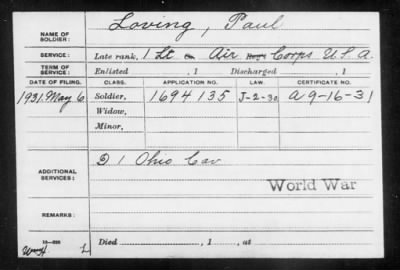 NAME OF SOLDIER: Loving, Paul
SERVICE: Late rank, 1 Lt Air Corps U.S.A.
TERM OF SERVICE: Enlisted , 1 Discharged , 1
DATE OF FILING. CLASS. APPLICATION NO. LAW. CERTIFICATE NO.
1931 May 6 Soldier, 1694135 J-2-30 A 9-16-31
Widow,
Minor,
ADDITIONAL SERVICES: 1 Ohio Cav
World War
REMARKS:
Died , 1 , at